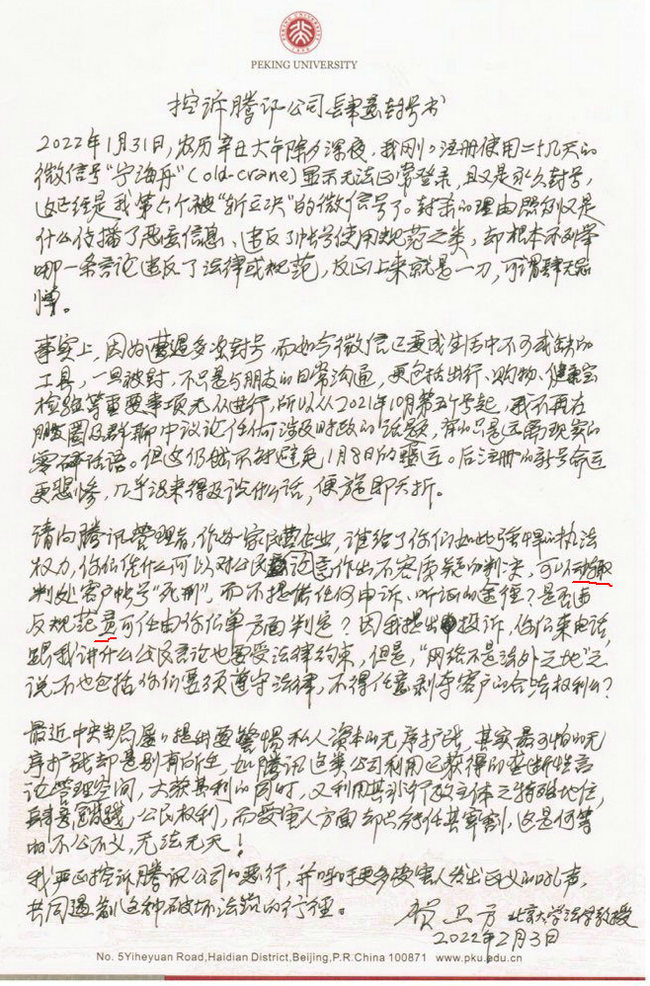 PEKING UNIVERSITY
控诉腾讯公司肆意封号书
2022年1月31日，农历辛丑大年除夕深夜，我刚刚注册使用二十几天的
微信号“宁海丹”(old-crane)显示无法正常登录，且又是永久封号，
这已经是我第六个被“斩立决”的微信号了。封杀的理由照例又是
什么传播了恶意信息、违反了帐号使用规范之类，却根本不列举
哪一条言论违反了法律或规范，反正上来就是一刀，可谓肆无忌
惮。
事实上，因为遭遇多次封号，而如今微信已变成生活中不可或缺的
工具，一旦被封，不只是与朋友的日常沟通，更包括出行、购物、健康宝
检验等重要事项无从进行，所以从2021年10月第五个号起，我不再在
朋友圈及群聊中议论任何涉及时政的话题，有的只是远离现实的
零碎话语。但这仍然不能避免1月8日的噩运。后注册的新号命运
更悲惨，几乎没来得及说什么话，便旋即夭折。
请问腾讯管理者，作为一家民营企业，谁给了你们如此强悍的执法
权力，你们凭什么可以对公民言论作出不容质疑的判决，可以动辄
判处客户帐号“死刑”，而不提供任何申诉、听证的途径？是否违
反规范竟可任由你们单方面判定？因我提出投诉，你们来电话，
跟我讲什么公民言论也要受法律约束，但是，“网络不是法外之地”之
说不也包括你们要须遵守法律，不得任意剥夺客户的合法权利么？
最近中央当局屡屡提出要警惕私人资本的无序扩张，其实最可怕的无
序扩张却是别有所在，如腾讯这类公司利用已获得的垄断性言
论管理空间，大获其利的同时，又利用其非行政主体之特殊地位，
肆意践踏公民权利，而受害人方面却只能任其宰割，这是何等
的不公不义，无法无天！
我严正控诉腾讯公司的恶行，并呼吁更多受害人发出正义的吼声，
共同遏制这种破坏法治的行径。
贺卫方 北京大学法学教授
2022年2月3日
No. 5Yiheyuan Road,Haidian District,Beijing,P.R.China 100871 www.pku.edu.cn